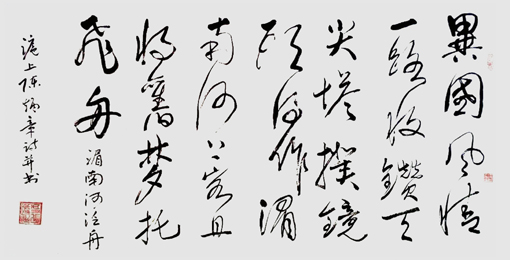 異國風情
一路收鑽天
尖塔撲鏡
頭作湄
南河上客且
將舊夢托
飛舟
湄南河泛舟
滬上陳炳章詩并書